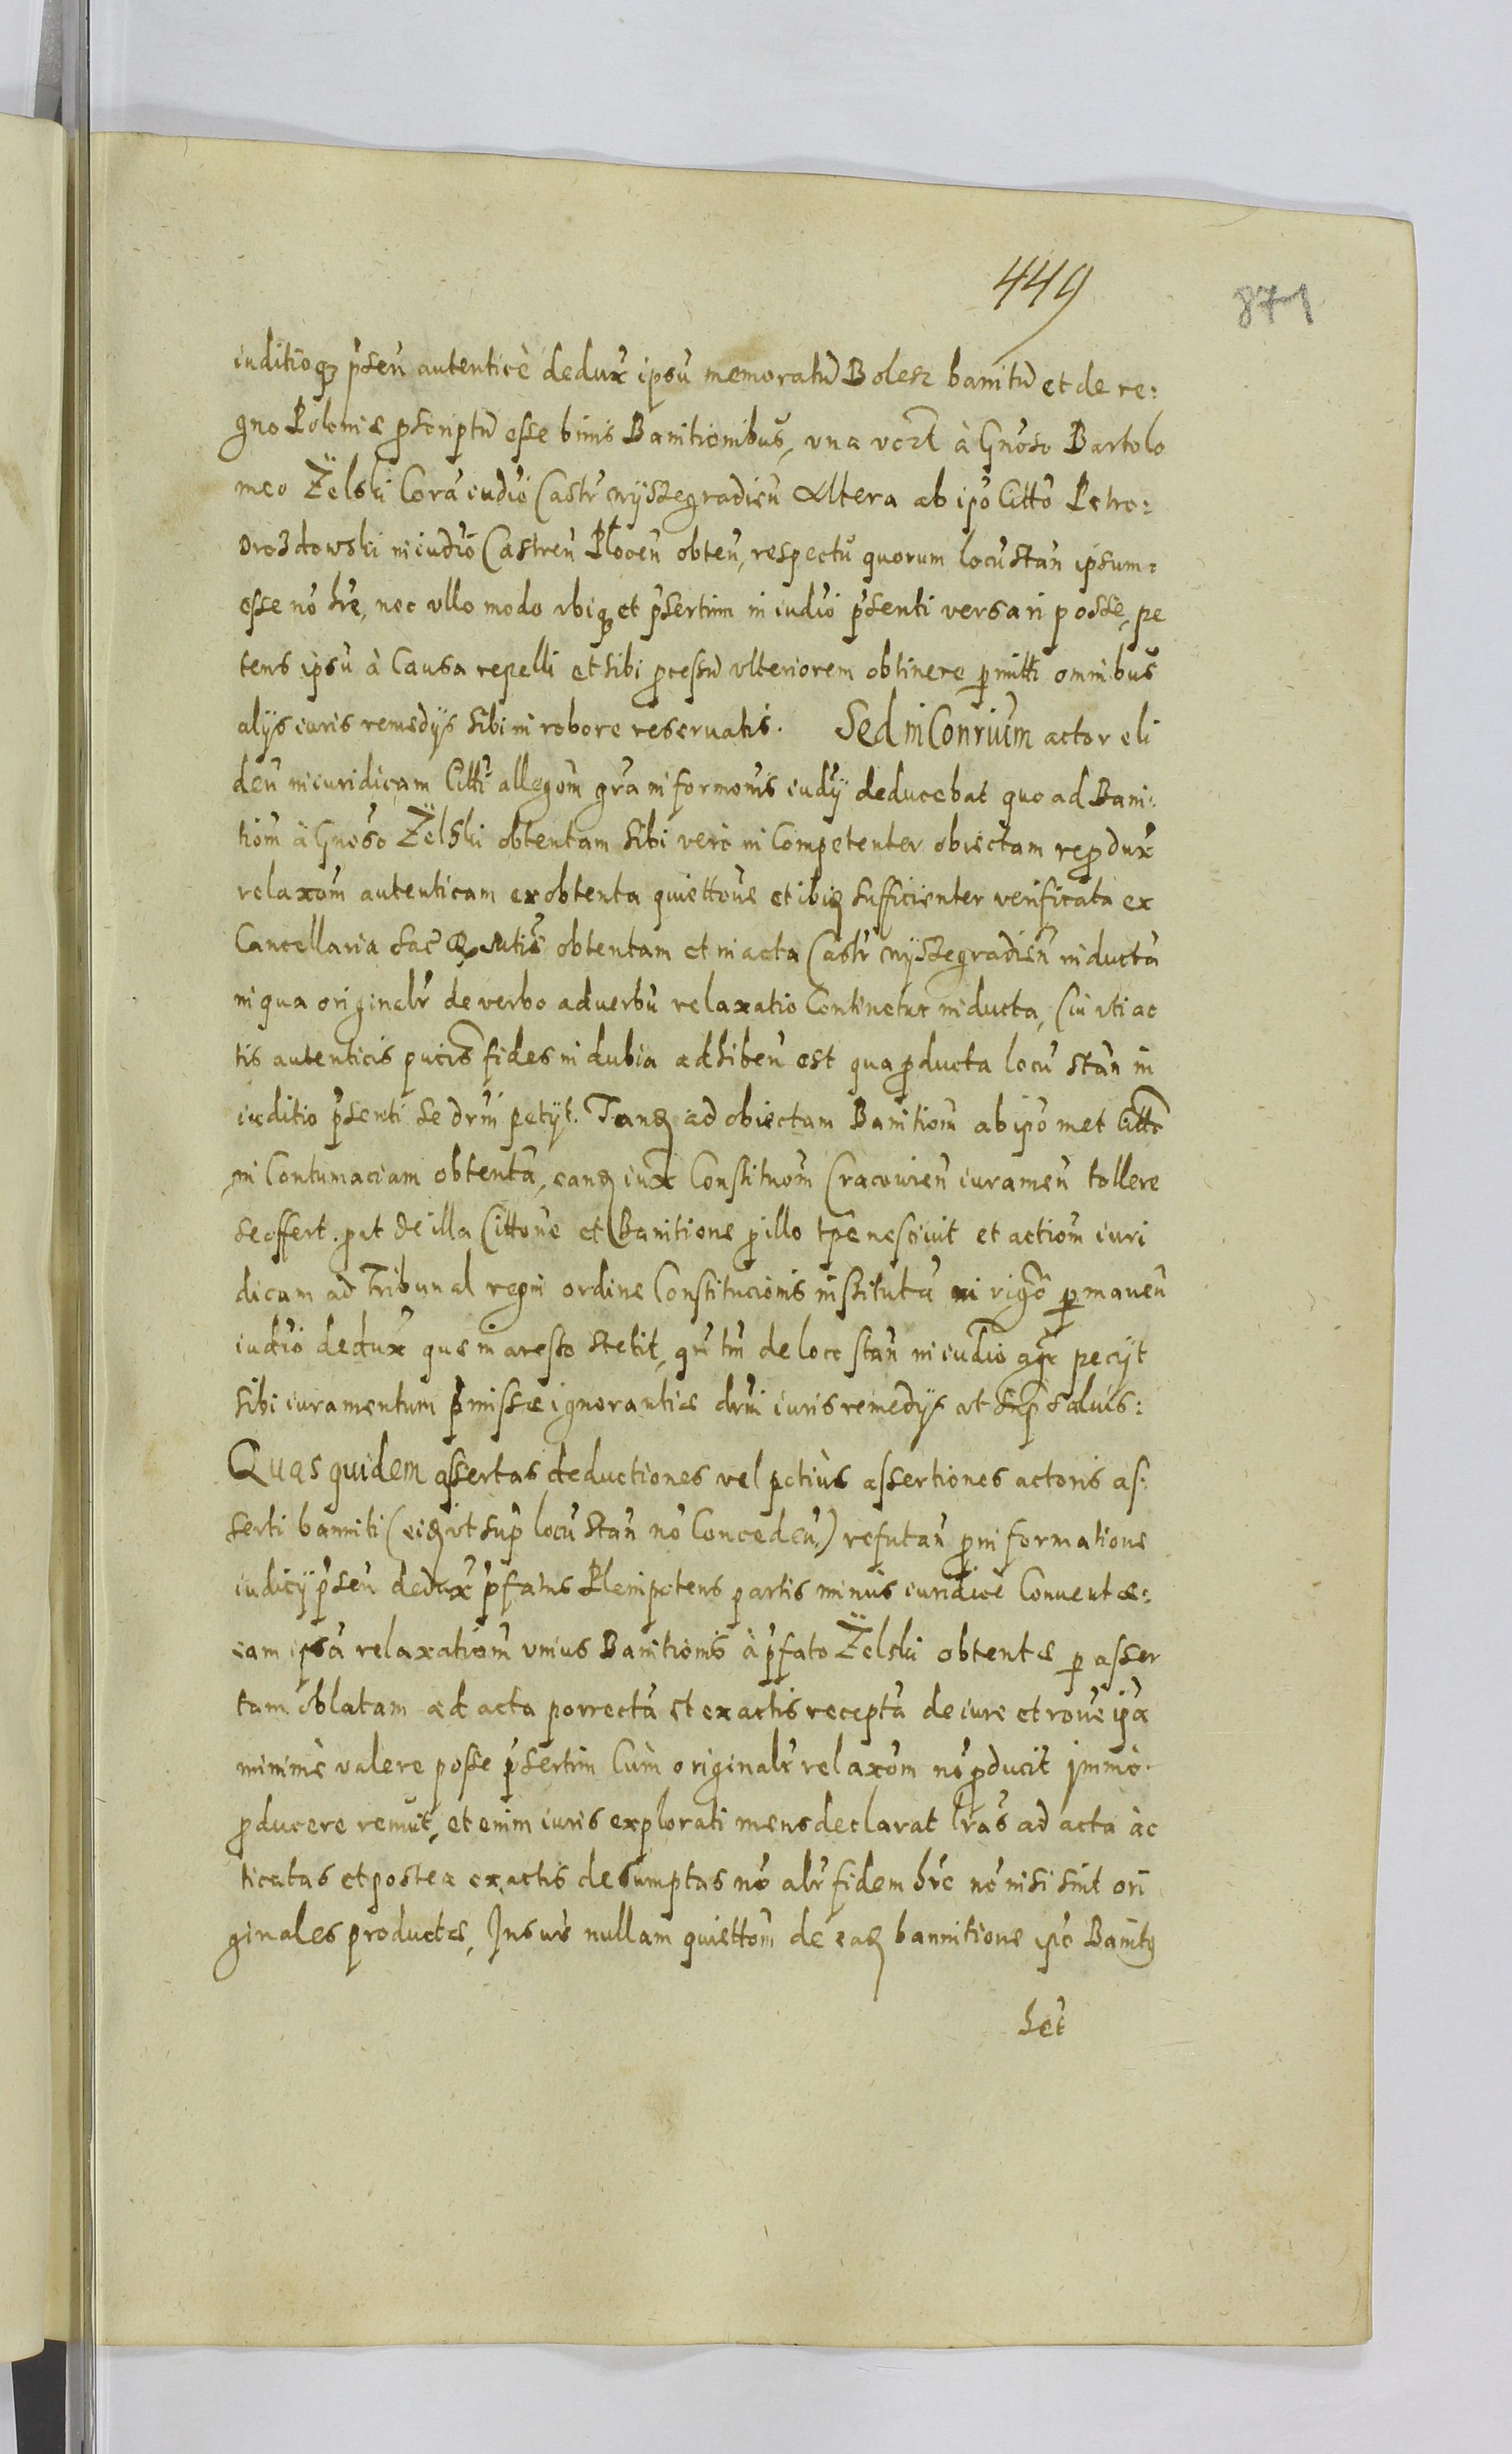 449
871
iuditioq₃ pñseñ autenticè dedux̃ ipsũ memoratũ Bolesz banitũ et de re:
gno Poloniæ pscriptũ esse binis Banitionibus, vna vc̃zl à Gñoso Bartolo
meo Żelski Corã iudiõ Castr̃ wyszegradień Altera ab ipõ Cittõ Petro:
Drozdowski in iudiõ Castreñ Płoceñ obteñ, respectũ quorum locũ stañ ipsum:
esse nõ hr̃e, nec vllo modo vbiq₃ et pñsertim in iudiõ pñsenti versari posse, pe
tens ipsũ à Causa repelli et sibi pcessũ vlteriorem obtinere pmitti omnibus
alys iuris remedys sibi in robore reseruatis. Sed in Conriũm actor eli
deñ iniuridicam Citti allegom̃ gr̃a informonis iudỹ deducebat quo ad Bani:
tiom̃ à Gnoso Żelski obtentam sibi verò in Competenter obiectam repdux̃
relaxom̃ autenticam ex obtenta quiettoñe et ibiq sufficienter verificata ex
Cancellaria Sac̃ R Mtis obtentam et in acta Castr̃ wyszegradień inductã
in qua originalr̃ de verbo ad verbũ relaxatio Continetur inducta, Cũ vti ac
tis autenticis pucis fides indubia adhibeñ est qua pducta locũ stañ in
iuditio pñsenti se drñi petyt. Tanq ad obiectam Banitiom̃ ab ipõ met Cittõ
in Contumaciam obtentã, eanq iux̃ Constituom̃ Cracouień iurameñ tollere
se offert. put de illa Cittoñe et Banitione p illo tp̃e nesciuit et actiom̃ iuri
dicam ad Tribunal regni ordine Constitucionis institutã in rigõ pmaneñ
iudiõ dedux̃ quæ in aresto stetit, qñ tñi de loco stañ in iudiõ agr̃ pecyt
sibi iuramentum pmissæ ignorantiæ drñi iuris remedys vt sup saluis:
Quas quidem assertas deductiones vel potiùs assertiones actoris as:
serti banniti (eiq vt sup̃ locũ stañ nõ Concedeñ) refutañ p informatione
iudicỹ pñseñ dedux̃ p̃fatus Plenipotens partis minus iuridicè Conuentæ:
eam ipsã relaxatiom̃ vnius Banitionis à p̃fato Żelski obtentæ p asser
tam oblatam ad acta porrectã et ex actis receptã de iure et roñe ipã
minimè valere posse pñsertim Cùm originalr̃ relaxom̃ nõ pducit jmmò
pducere renuit, et enim iuris explorati mens declarat lr̃as ad acta àc
ticatas et postea ex actis desumptas nõ alr̃ fidem hr̃e nõ nisi sint ori
ginales productæ, Insup̃ nullam quiettom̃ de eaq bannitione ipẽ Banitꝯ
het